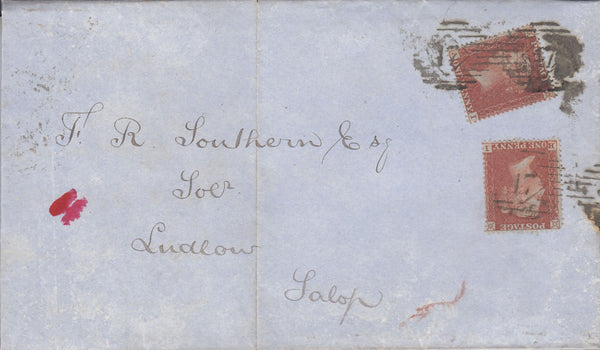 F. R. Southern Esq
Solr.
Ludlow
Salop
POSTAGE
ONE PENNY
17